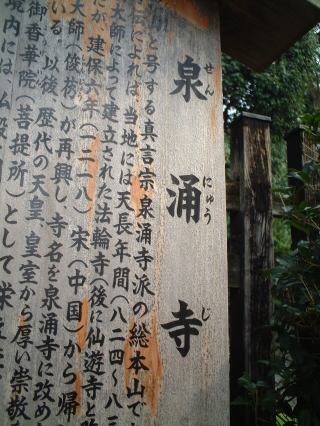 泉涌寺
せんにゅうじ
と号する真言宗泉涌寺派の総本山で
によれば、当地には天長年間(八二四〜八三
大師によって建立された法輪寺(後に仙遊寺と
だが、建保六年(一二一八)宋(中国)から帰
大師(俊芿)が再興し、寺名を泉涌寺に改め
いる。以後、歴代の天皇、皇室から厚い崇敬
御香華院(菩提所)として栄
境内には仏殿